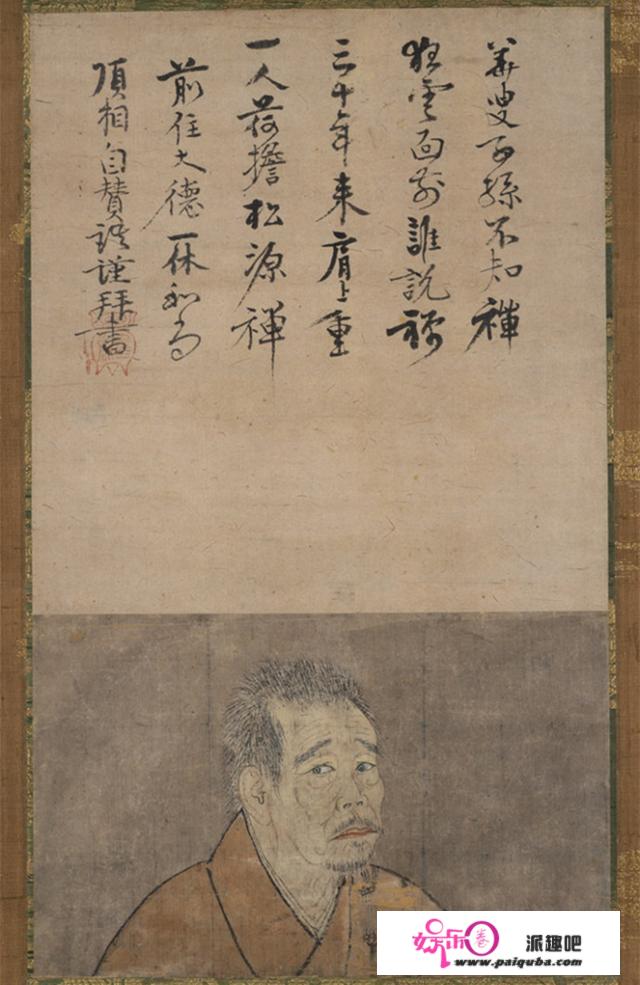 華叟子孫不知禅
狂雲面前誰説禅
三十年来肩上重
一人荷擔松源禅
前住大德一休和尚
頂相自賛謹拝書
娱乐卷
派趣吧
www.paiquba.com